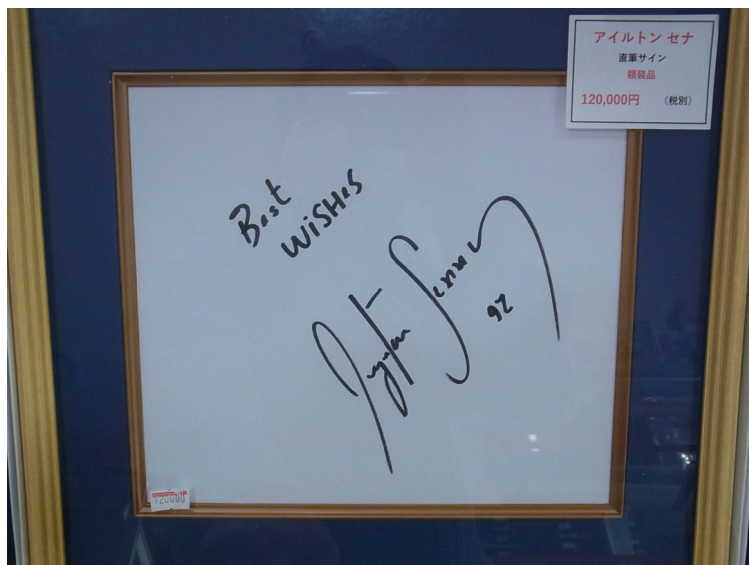 アイルトン セナ
直筆サイン
額装品
120,000円 (税別)
Best
WiSHes
Ayrton Senna
92
120000